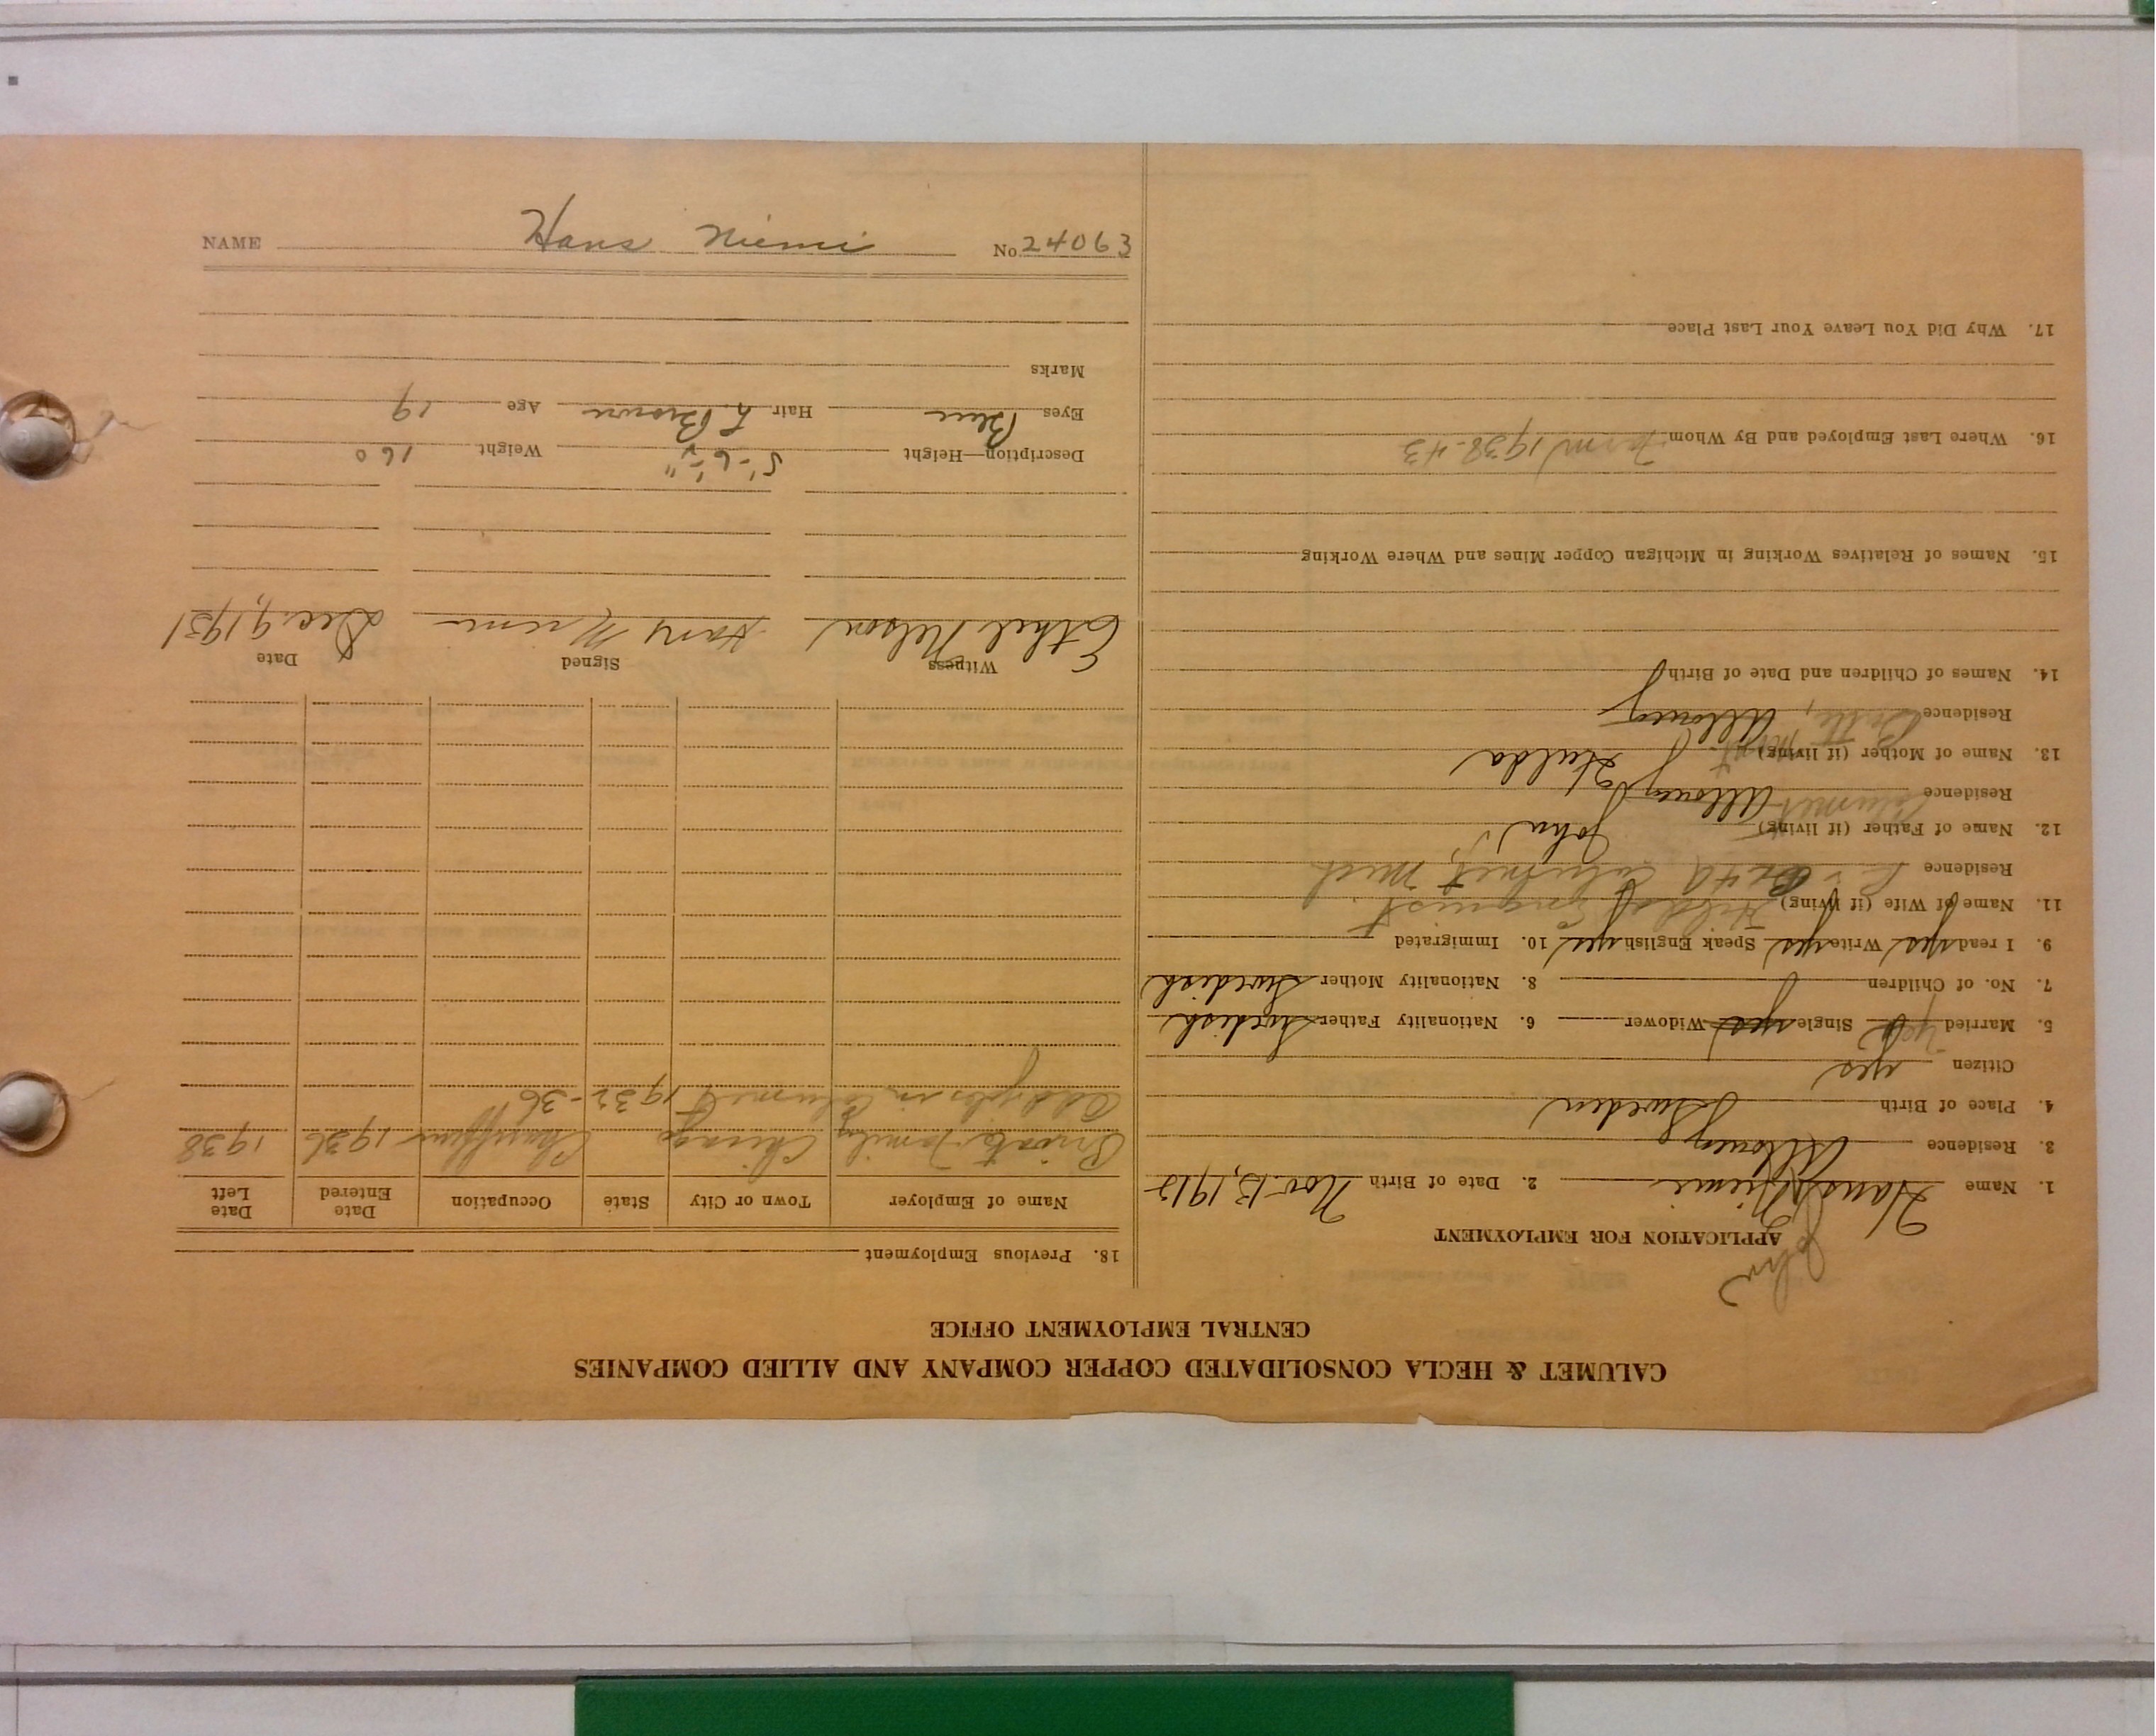 CALUMET & HECLA CONSOLIDATED COPPER COMPANY AND ALLIED COMPANIES
CENTRAL EMPLOYMENT OFFICE
APPLICATION FOR EMPLOYMENT
John
1. Name Hans Niemi 2. Date of Birth Nov. 13, 1912
3. Residence Allouez
4. Place of Birth Sweden
Citizen yes
5. Married yes Single yes Widower 6. Nationality Father Swedish
7. No. of Children 8. Nationality Mother Swedish
9. I read yes Write yes Speak English yes 10. Immigrated
11. Name of Wife (if living) Hilda
Residence Calumet, Mich
12. Name of Father (if living) John
Residence Allouez Calumet
13. Name of Mother (if living) Hulda
Residence Allouez Butte, Mont.
14. Names of Children and Date of Birth
15. Names of Relatives Working in Michigan Copper Mines and Where Working
16. Where Last Employed and By Whom Farm 1938-43
17. Why Did You Leave Your Last Place
18. Previous Employment
Name of Employer Town or City State Occupation Date Entered Date Left
Private Family Chicago Chauffeur 1936 1938
Odd jobs in Calumet 1932-36
Witness Signed Date
Ethel Nelson Hans Niemi Dec. 9, 1931
Description—Height 5'-6½" Weight 160
Eyes Blue Hair L. Brown Age 19
Marks
NAME Hans Niemi No. 24063